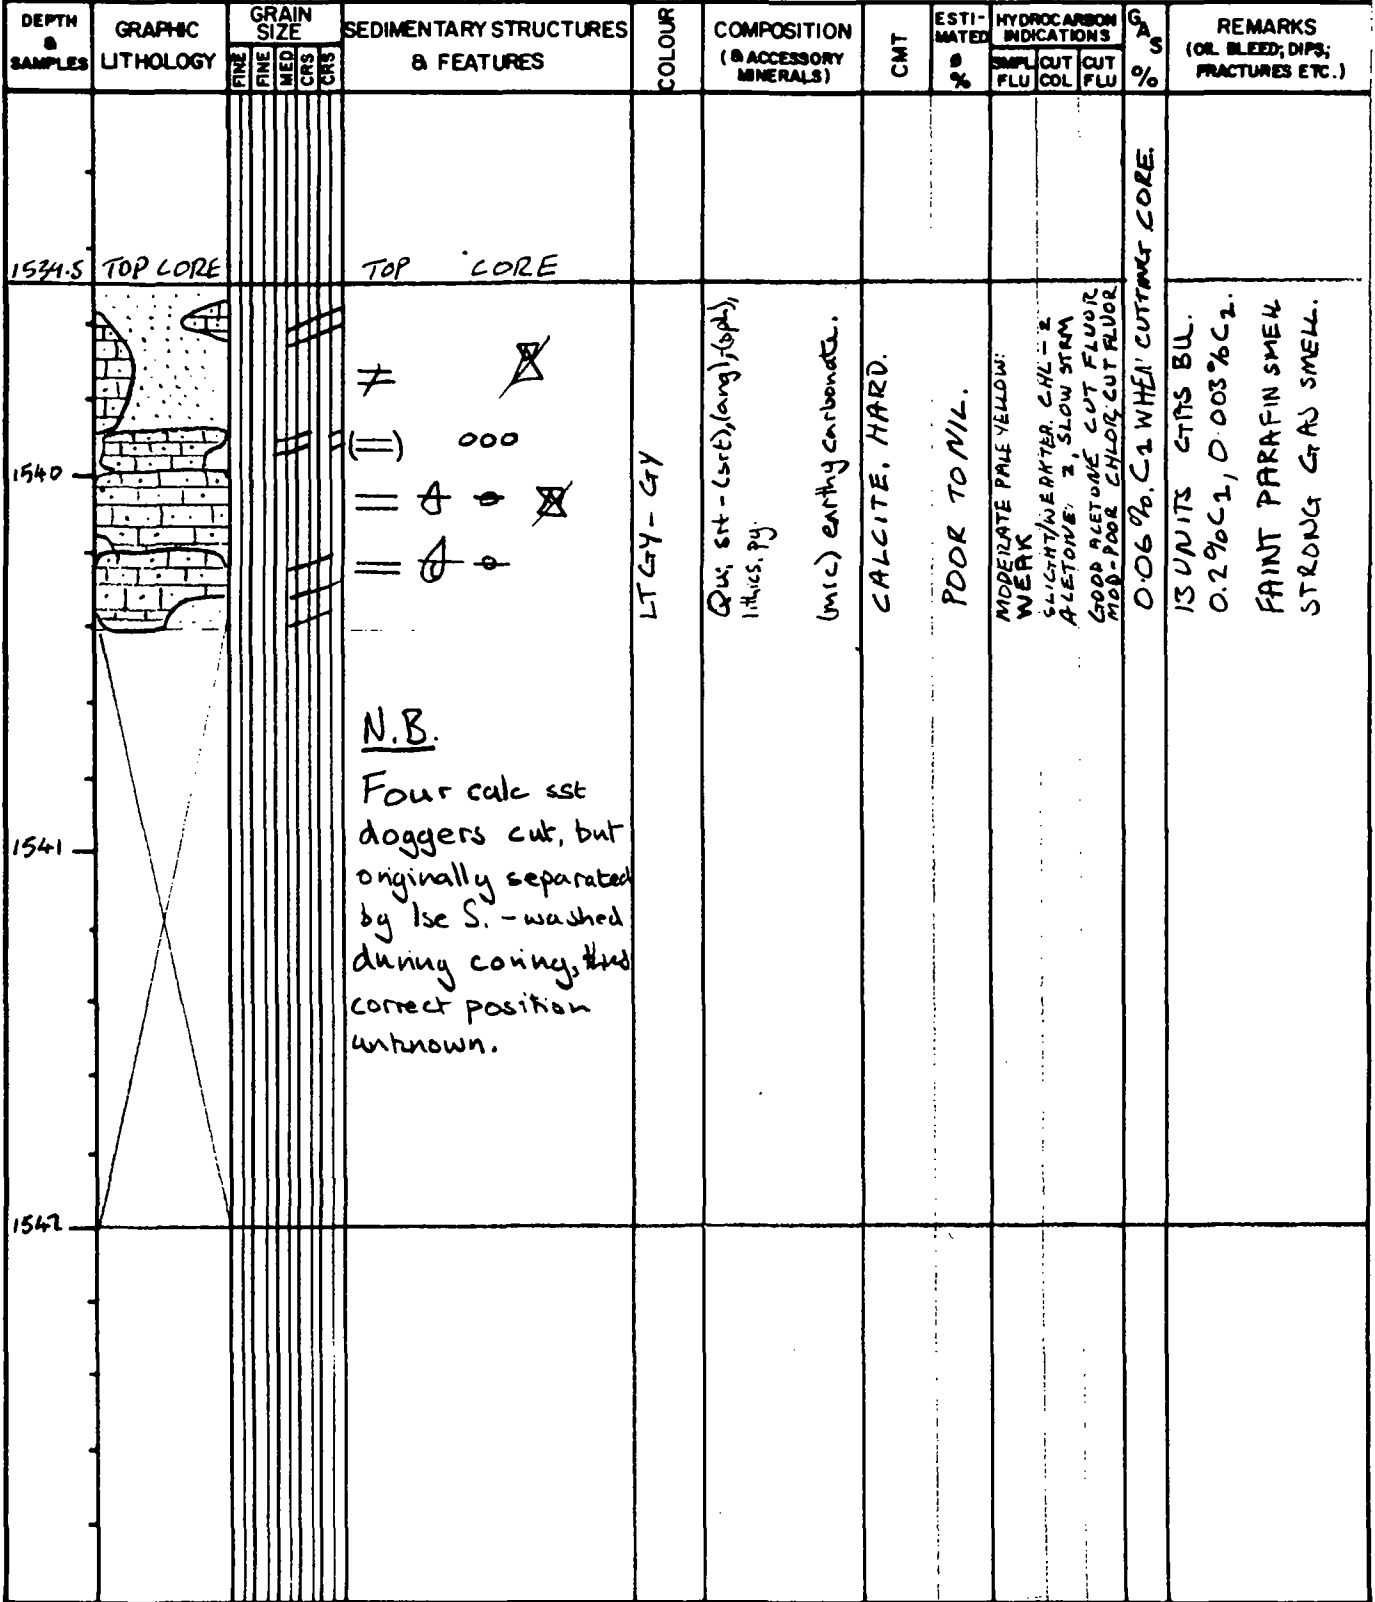 DEPTH & SAMPLES
GRAPHIC LITHOLOGY
GRAIN SIZE
FINE
FINE
MED
CRS
CRS
SEDIMENTARY STRUCTURES & FEATURES
COLOUR
COMPOSITION
(& ACCESSORY MINERALS)
CMT
ESTI-MATED ø %
HYDROCARBON INDICATIONS
SMPL FLU
CUT COL
CUT FLU
GAS %
REMARKS
(OIL BLEED; DIPS; FRACTURES ETC.)
1539.5
TOP CORE
TOP CORE
1540
1541
1542
N.B.
Four calc sst
doggers cut, but
originally separated
by lse S. - washed
during coring,
correct position
unknown.
LT GY - GY
srt - (srt), (ang), (sph),
lithics. py.
(mic) earthy carbonate.
CALCITE. HARD.
POOR TO NIL.
MODERATE PALE YELLOW:
WEAK
SLIGHT/WEAK YER. CHL - 2
ACETONE: 2, SLOW STRM
GOOD ACETONE CUT FLUOR
MOD-POOR CHLOR. CUT FLUOR
0.06 %. C1 WHEN CUTTING CORE.
13 UNITS GAS BU.
0.2% C1, 0.003% C2.
FAINT PARAFIN SMELL
STRONG GAS SMELL.